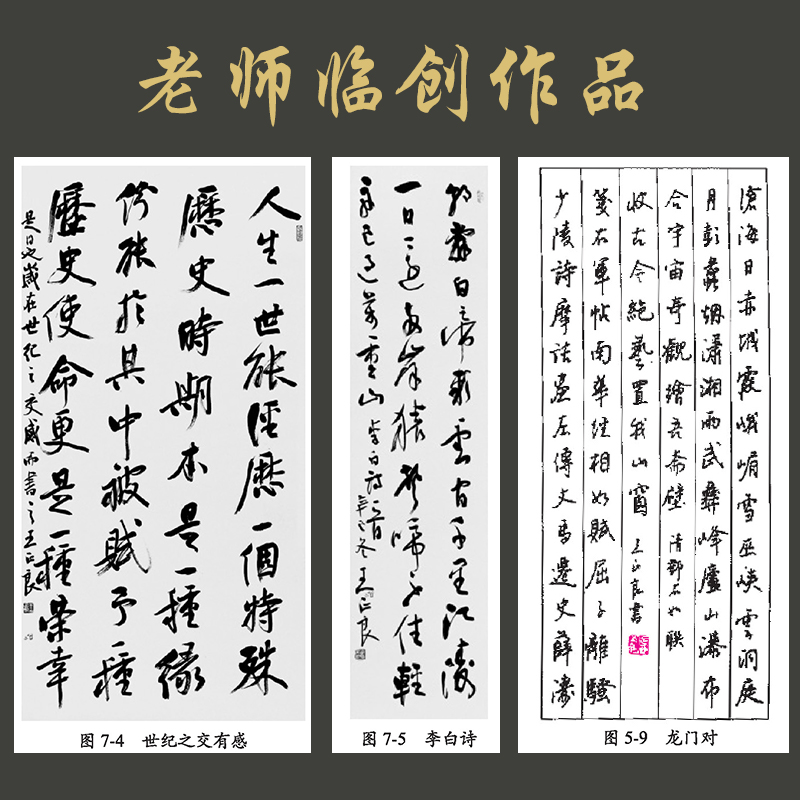 老师临创作品
人生一世能經歷一個特殊
歷史時期本是一種緣
份能於其中被賦予一種
歷史使命更是一種榮幸
是日也歲在世紀之交感而書之王正良
图 7-4 世纪之交有感
朝辭白帝彩雲間千里江陵
一日還兩岸猿聲啼不住輕
舟已過萬重山 李白詩一首
冬王正良
图 7-5 李白诗
滄海日赤城霞峨嵋雪巫峽雲洞庭
月彭蠡烟瀟湘雨武彝峰廬山瀑布
合宇宙奇觀繪吾齋壁 清鄧石如聯
少陵詩摩詰畫左傳文馬遷史薛濤
箋右軍帖南華經相如賦屈子離騷
收古今絕藝置我山窗 王正良書
图 5-9 龙门对